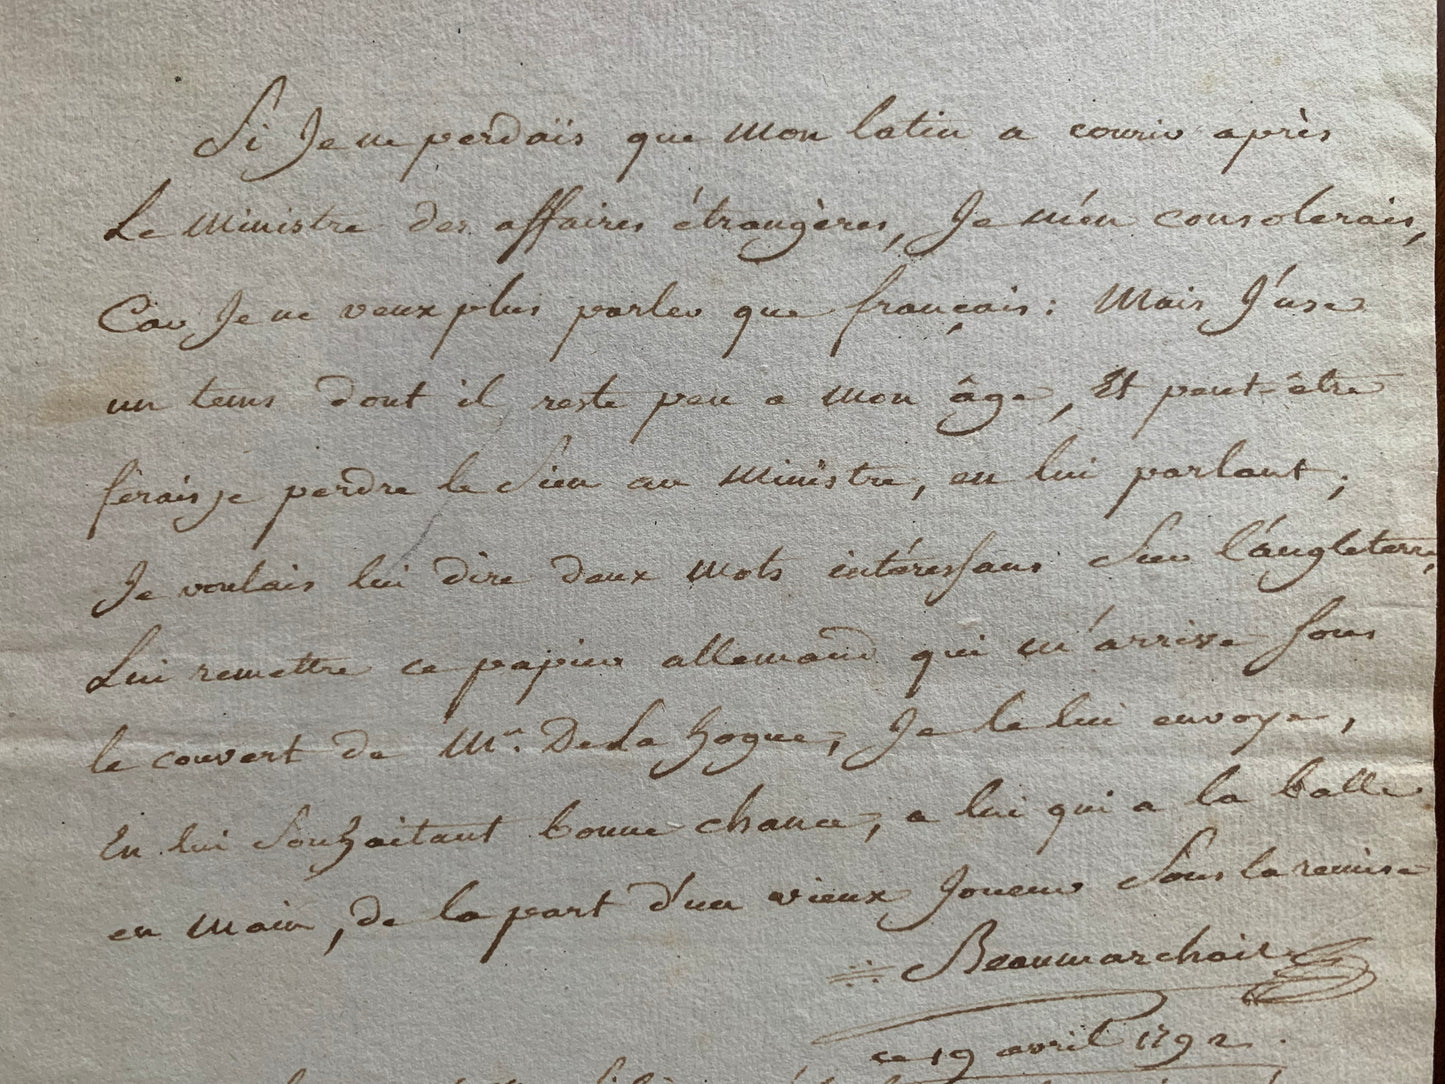 Si Je ne perdaïs que mon latin a courir après
Le ministre des affaires étrangères, Je m'en consolerais,
Car Je ne veux plus parler que français : Mais J'use
un tems dont il reste peu a mon âge, Et peut-être
ferais je perdre le Sien au Ministre, en lui parlant ;
Je voulais lui dire deux mots intéressans Sur l'angleterre,
Lui remettre ce papier allemand qui m'arrive sous
le couvert de Mr. De La hogue, Je le lui envoye,
En lui Souhaitant bonne chance, a lui qui a la balle
en main, de la part d'un vieux Joueur Sous la remise
Beaumarchais
ce 19 avril 1792.